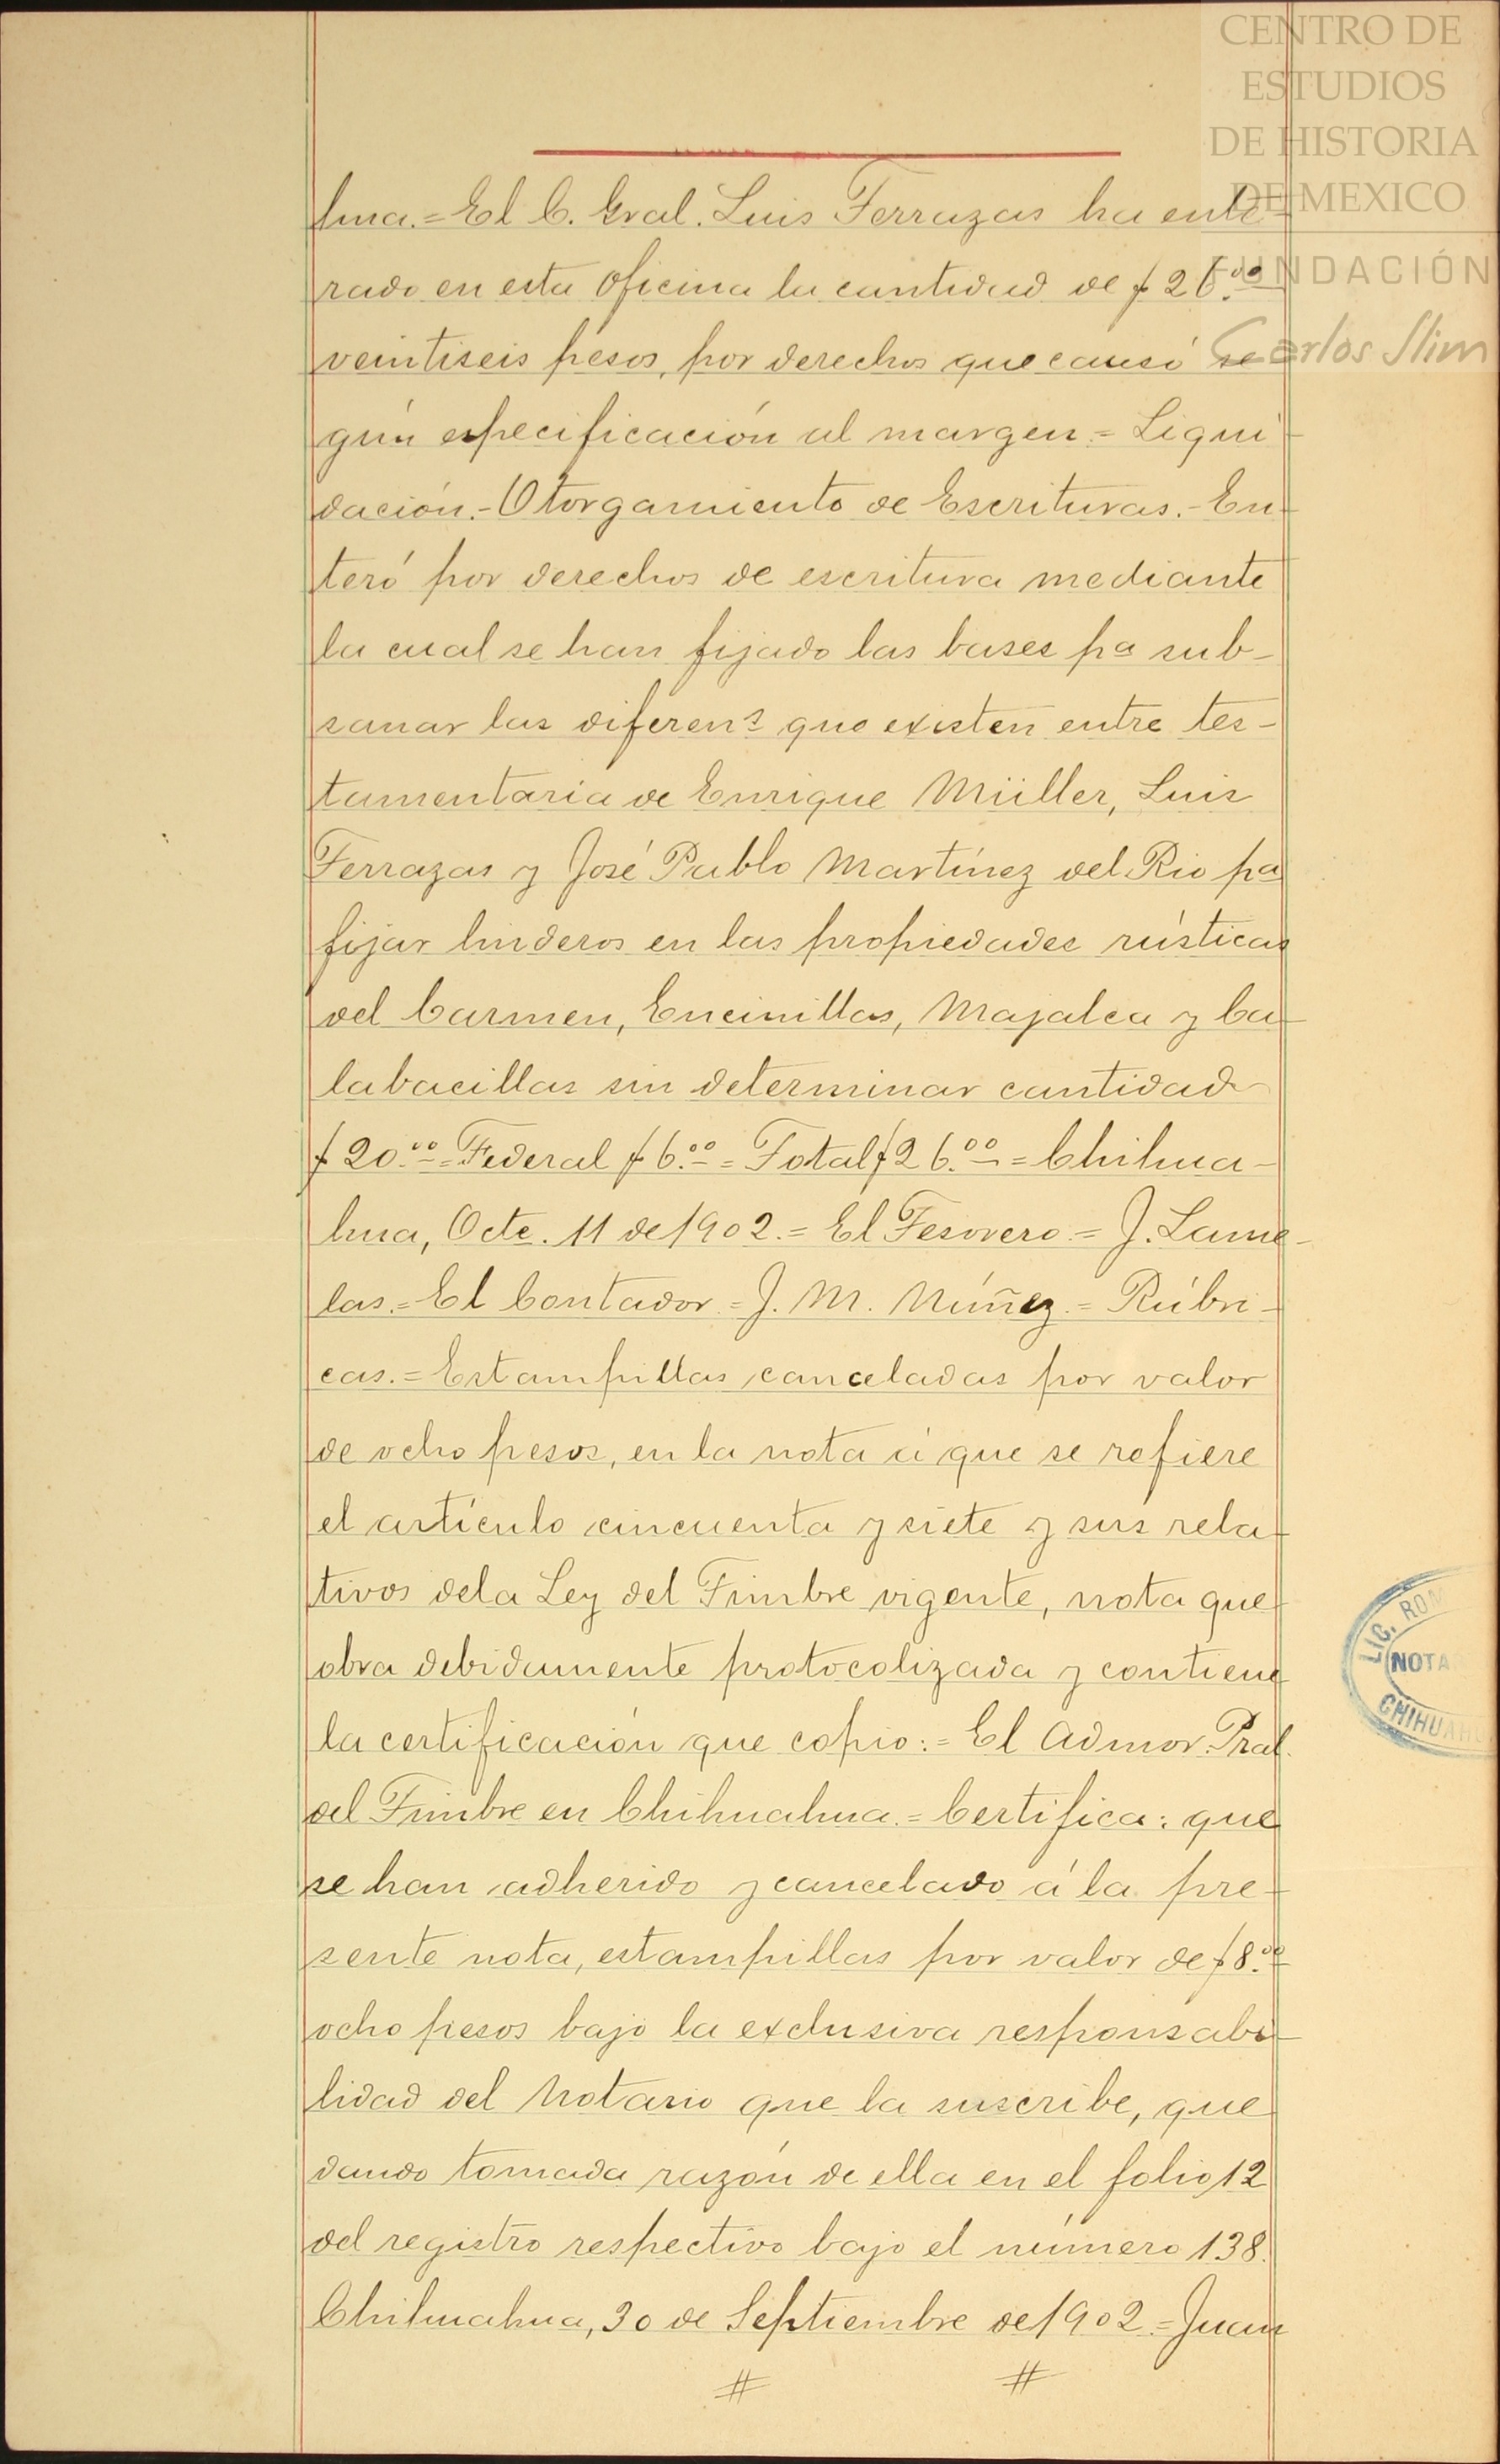 CENTRO DE
ESTUDIOS
DE HISTORIA
DE MEXICO
FUNDACIÓN
Carlos Slim
hua.=El C. Gral. Luis Terrazas ha ente-
rado en esta Oficina la cantidad de $26.00
veintiseis pesos, por derechos que causó se-
gún especificación al margen.=Liqui-
dación.-Otorgamiento de Escrituras.-En-
teró por derechos de escritura mediante
la cual se han fijado las bases pa sub-
sanar las diferens que existen entre tes-
tamentaria de Enrique Müller, Luis
Terrazas y José Pablo Martínez del Rio pa
fijar linderos en las propiedades rústicas
del Carmen, Encinillas, Majalca y Ca-
labacillas sin determinar cantidad
$20.00=Federal $6.00=Total $26.00=Chihua-
hua, Octe. 11 de 1902.=El Tesorero.=J. Lame-
las.=El Contador=J. M. Núñez.=Rúbri-
cas.=Estampillas canceladas por valor
de ocho pesos, en la nota á que se refiere
el artículo cincuenta y siete y sus rela-
tivos dela Ley del Timbre vigente, nota que
obra debidamente protocolizada y contiene
la certificación que copio:=El Admor. Pral.
del Timbre en Chihuahua.=Certifica: que
se han adherido y cancelado á la pre-
sente nota, estampillas por valor de $8.00
ocho pesos bajo la exclusiva responsabi-
lidad del Notario que la suscribe, que
dando tomada razón de ella en el folio 12
del registro respectivo bajo el número 138.
Chihuahua, 30 de Septiembre de 1902.=Juan
# #
LIC. ROM
NOTA
CHIHUAHU